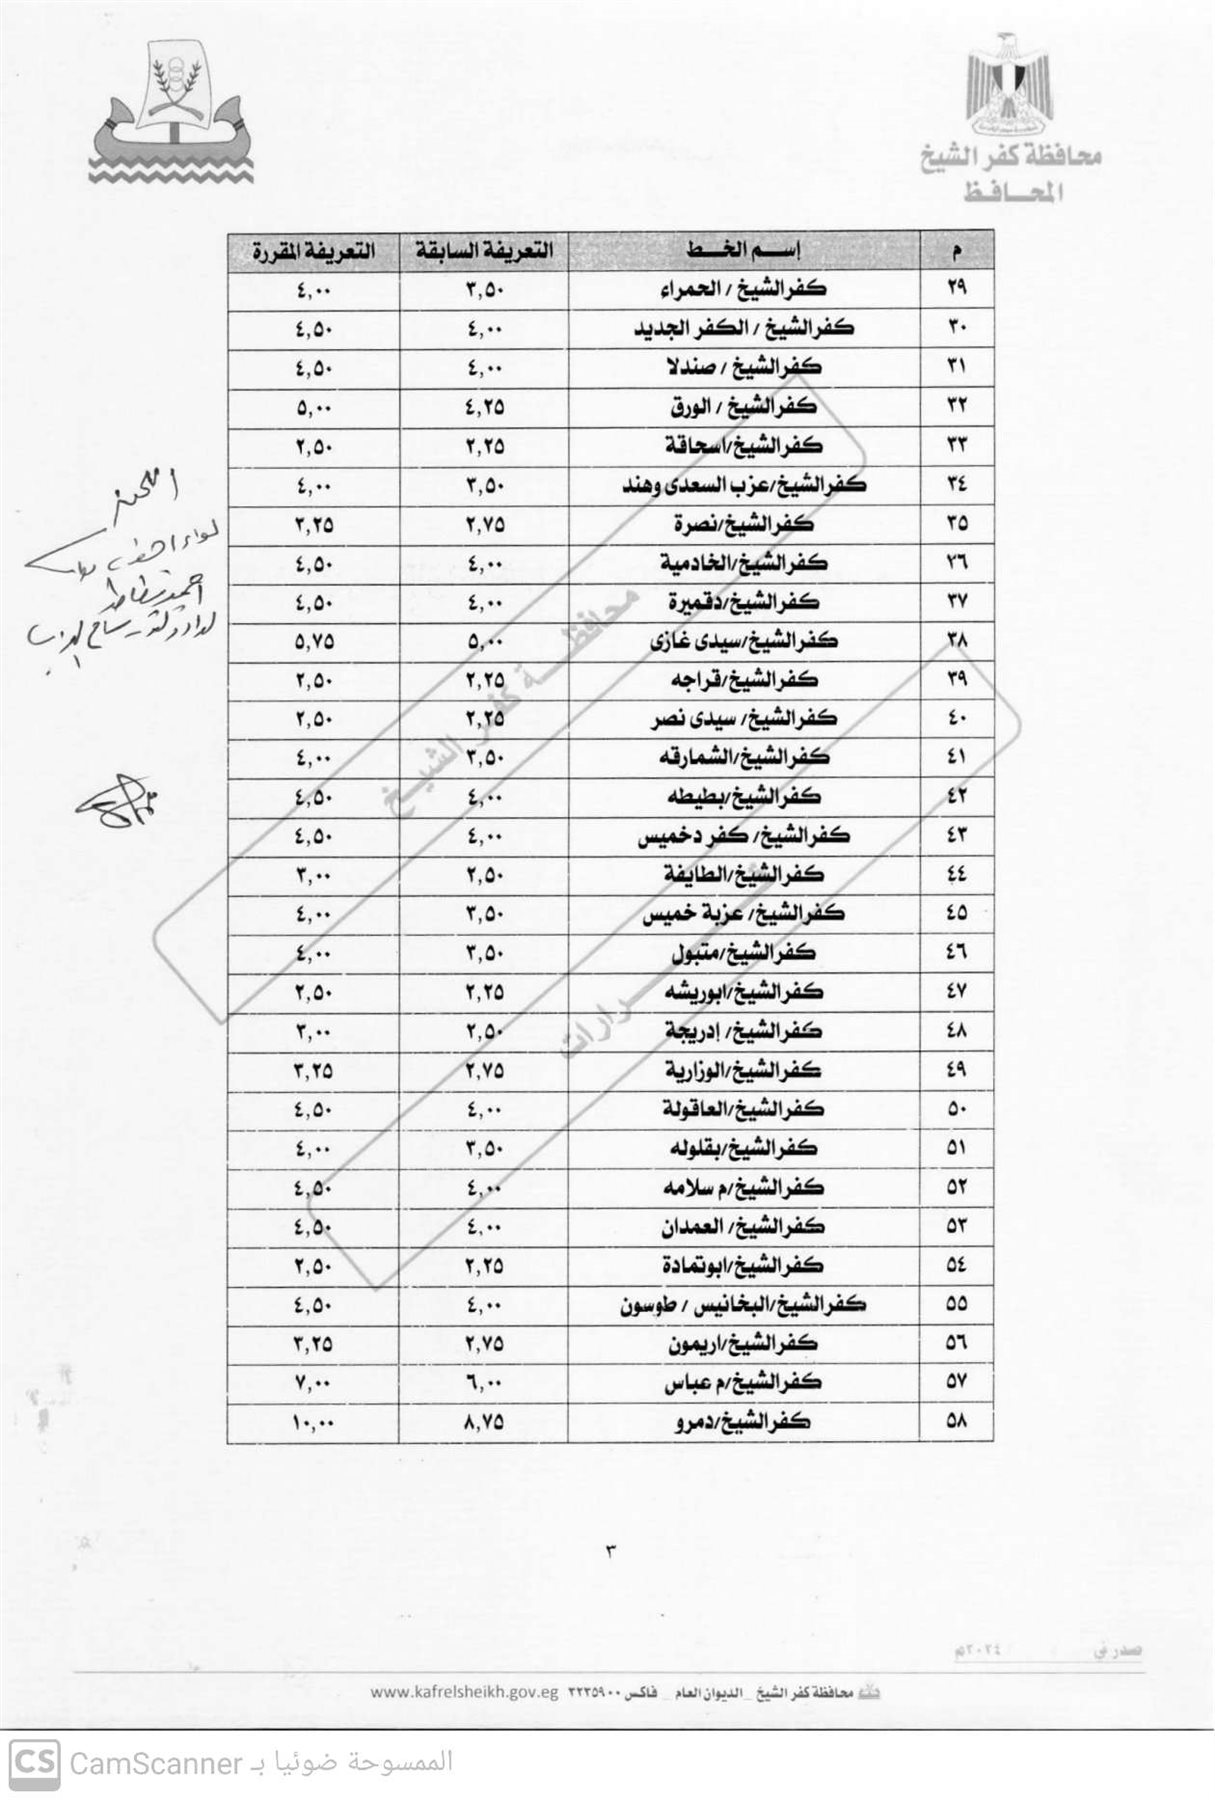 محافظة كفر الشيخ
المحافظ
م إسم الخط التعريفة السابقة التعريفة المقررة
٢٩ كفرالشيخ / الحمراء ٣,٥٠ ٤,٠٠
٣٠ كفرالشيخ / الكفر الجديد ٤,٠٠ ٤,٥٠
٣١ كفرالشيخ / صندلا ٤,٠٠ ٤,٥٠
٣٢ كفرالشيخ / الورق ٤,٢٥ ٥,٠٠
٣٣ كفرالشيخ/اسحاقة ٢,٢٥ ٢,٥٠
٣٤ كفرالشيخ/عزب السعدى وهند ٣,٥٠ ٤,٠٠
٣٥ كفرالشيخ/نصرة ٢,٧٥ ٣,٢٥
٣٦ كفرالشيخ/الخادمية ٤,٠٠ ٤,٥٠
٣٧ كفرالشيخ/دقميرة ٤,٠٠ ٤,٥٠
٣٨ كفرالشيخ/سيدى غازى ٥,٠٠ ٥,٧٥
٣٩ كفرالشيخ/قراجه ٢,٢٥ ٢,٥٠
٤٠ كفرالشيخ/ سيدى نصر ٢,٢٥ ٢,٥٠
٤١ كفرالشيخ/الشمارقه ٣,٥٠ ٤,٠٠
٤٢ كفرالشيخ/بطيطه ٤,٠٠ ٤,٥٠
٤٣ كفرالشيخ/ كفر دخميس ٤,٠٠ ٤,٥٠
٤٤ كفرالشيخ/الطايفة ٢,٥٠ ٣,٠٠
٤٥ كفرالشيخ/ عزبة خميس ٣,٥٠ ٤,٠٠
٤٦ كفرالشيخ/متبول ٣,٥٠ ٤,٠٠
٤٧ كفرالشيخ/ابوريشه ٢,٢٥ ٢,٥٠
٤٨ كفرالشيخ/ إدريجة ٢,٥٠ ٣,٠٠
٤٩ كفرالشيخ/الوزارية ٢,٧٥ ٣,٢٥
٥٠ كفرالشيخ/العاقولة ٤,٠٠ ٤,٥٠
٥١ كفرالشيخ/بقلوله ٣,٥٠ ٤,٠٠
٥٢ كفرالشيخ/م سلامه ٤,٠٠ ٤,٥٠
٥٣ كفرالشيخ/ العمدان ٤,٠٠ ٤,٥٠
٥٤ كفرالشيخ/ابوتمادة ٢,٢٥ ٢,٥٠
٥٥ كفرالشيخ/البخانيس / طوسون ٤,٠٠ ٤,٥٠
٥٦ كفرالشيخ/اريمون ٢,٧٥ ٣,٢٥
٥٧ كفرالشيخ/م عباس ٦,٠٠ ٧,٠٠
٥٨ كفرالشيخ/دمرو ٨,٧٥ ١٠,٠٠
محافظة كفر الشيخ
٣
صدر في ٢٠٢٤م
محافظة كفر الشيخ _ الديوان العام _ فاكس ٣٢٣٥٩٠٠ www.kafrelsheikh.gov.eg
CS CamScanner الممسوحة ضوئيا بـ